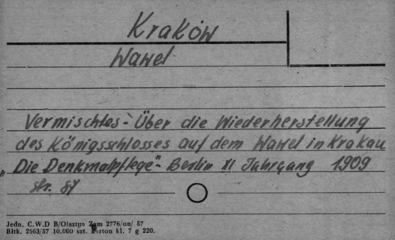 Kraków
Wawel
Vermischtes - Über die Wiederherstellung
des Königsschlosses auf dem Wawel in Krakau
"Die Denkmalpflege" - Berlin XI Jahrgang 1909
Str. 87
Jedn. C.W.D B/Olsztyn Zam 2776/on/ 57
Bltk. 2563/57 10.000 szt. Karton kl. 7 g 220.